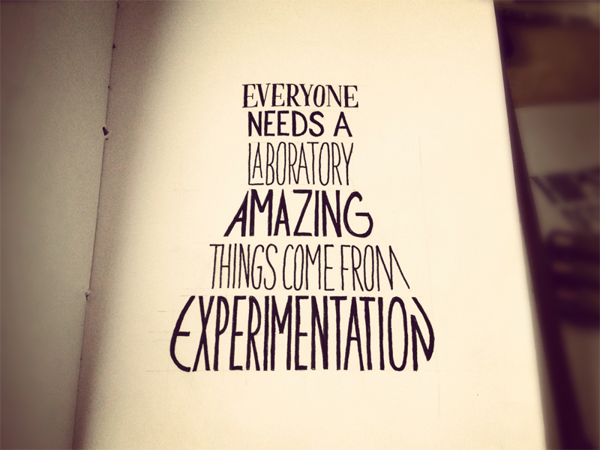 EVERYONE
NEEDS A
LABORATORY
AMAZING
THINGS COME FROM
EXPERIMENTATION